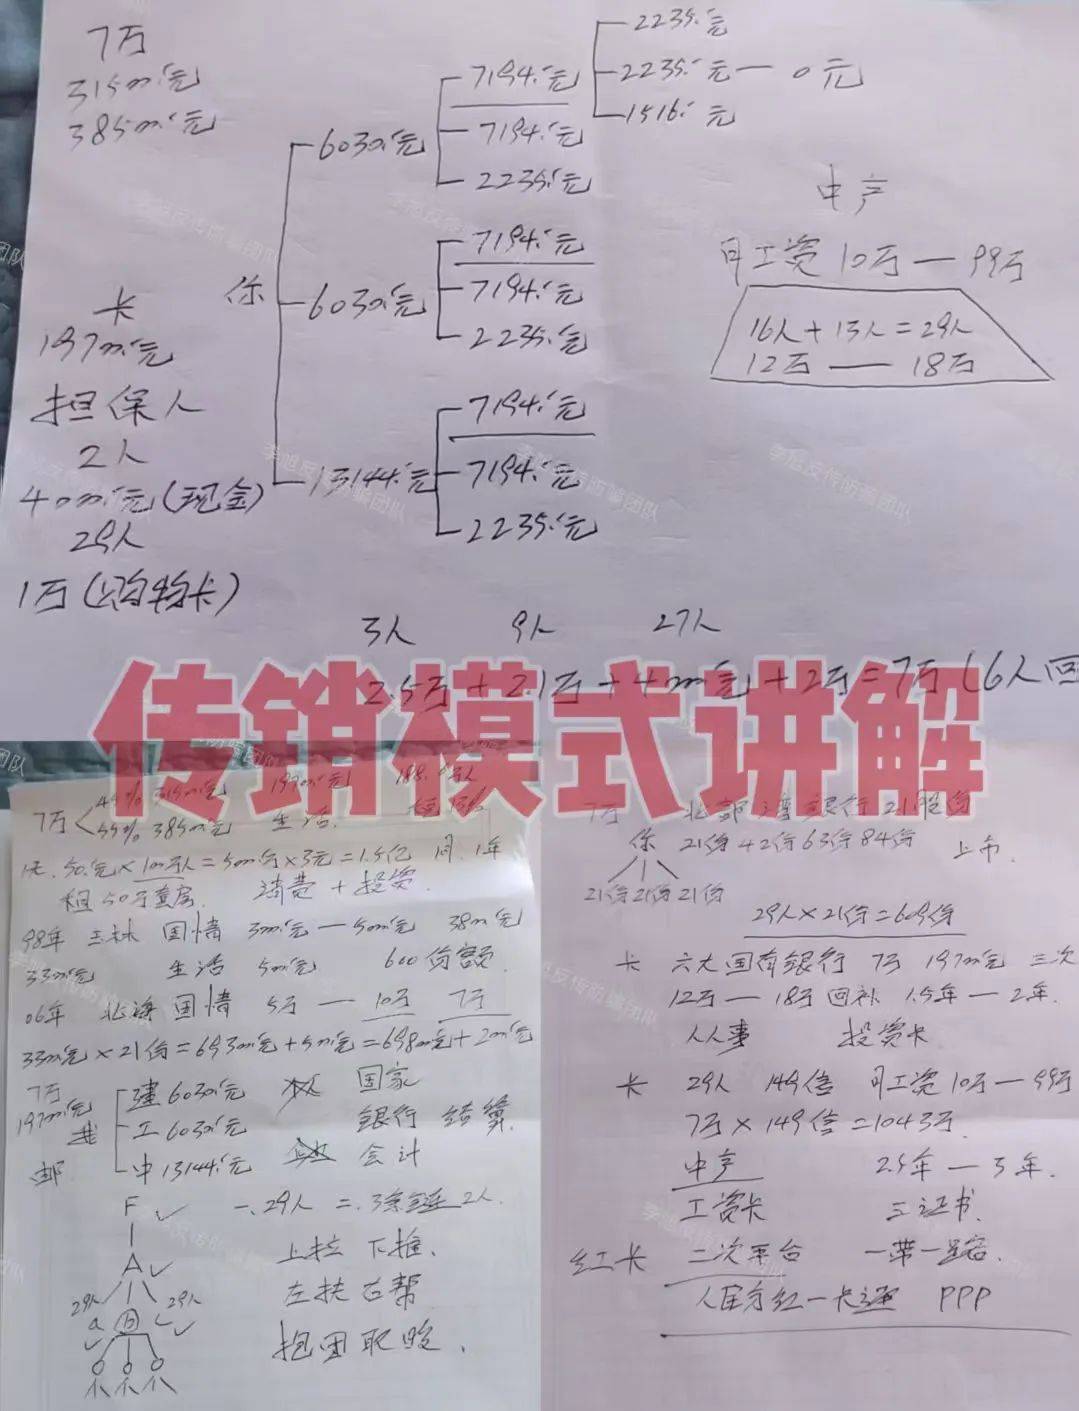 7万
315m元
385m元
卡
197m元
担保人
2人
40m元(现金)
29人
1万(购物卡)
你
603m元
603m元
13144.元
7194.元
7194.元
2235.元
7194.元
7194.元
2235.元
7194.元
7194.元
2235.元
2235.元
2235.元 — 0元
1516.元
中产
月工资 10万 — 99万
16人 + 13人 = 29人
12万 — 18万
3人 9人 27人
2.5万 + 2.1万 + 4m元 + 2万 = 7万 (6人回
传销模式讲解
7万 45% 315m元 197m元
55% 385m元 生活
1天.50.元 × 100万人 = 5m万 × 3元 = 1.5亿 1月.1年
租50万套房. 消费 + 投资.
98年 玉林 国情 3m元 — 5m元 38m元
33m元 生活 5m元 600份额.
06年 北海 国情 5万 — 10万 7万
33m元 × 21份 = 693m元 + 5m元 = 698m元 + 2m元
7万
197m元
邮
建 603m元 国家
工 603m元 银行 结算.
中 13144.元 会计
F
一.29人 二.3条链 2人.
A
上拉 下推.
29人 29人
左扶 右帮
a B c
抱团取暖.
7万 北部湾银行 21股份
你 21份 42份 63份 84份 上市.
21份 21份 21份
29人 × 21份 = 609份
卡 六大国有银行 7万 197m元 三次
12万 — 18万 回补 1.5年 — 2年.
人人事 投资卡
卡 29人 149倍 月工资 10万 — 99万
7万 × 149倍 = 1043万.
中产 2.5年 — 3年.
工资卡 三证书.
红卡 二次平台 一带一路.
一卡通 PPP
李旭反传防骗团队